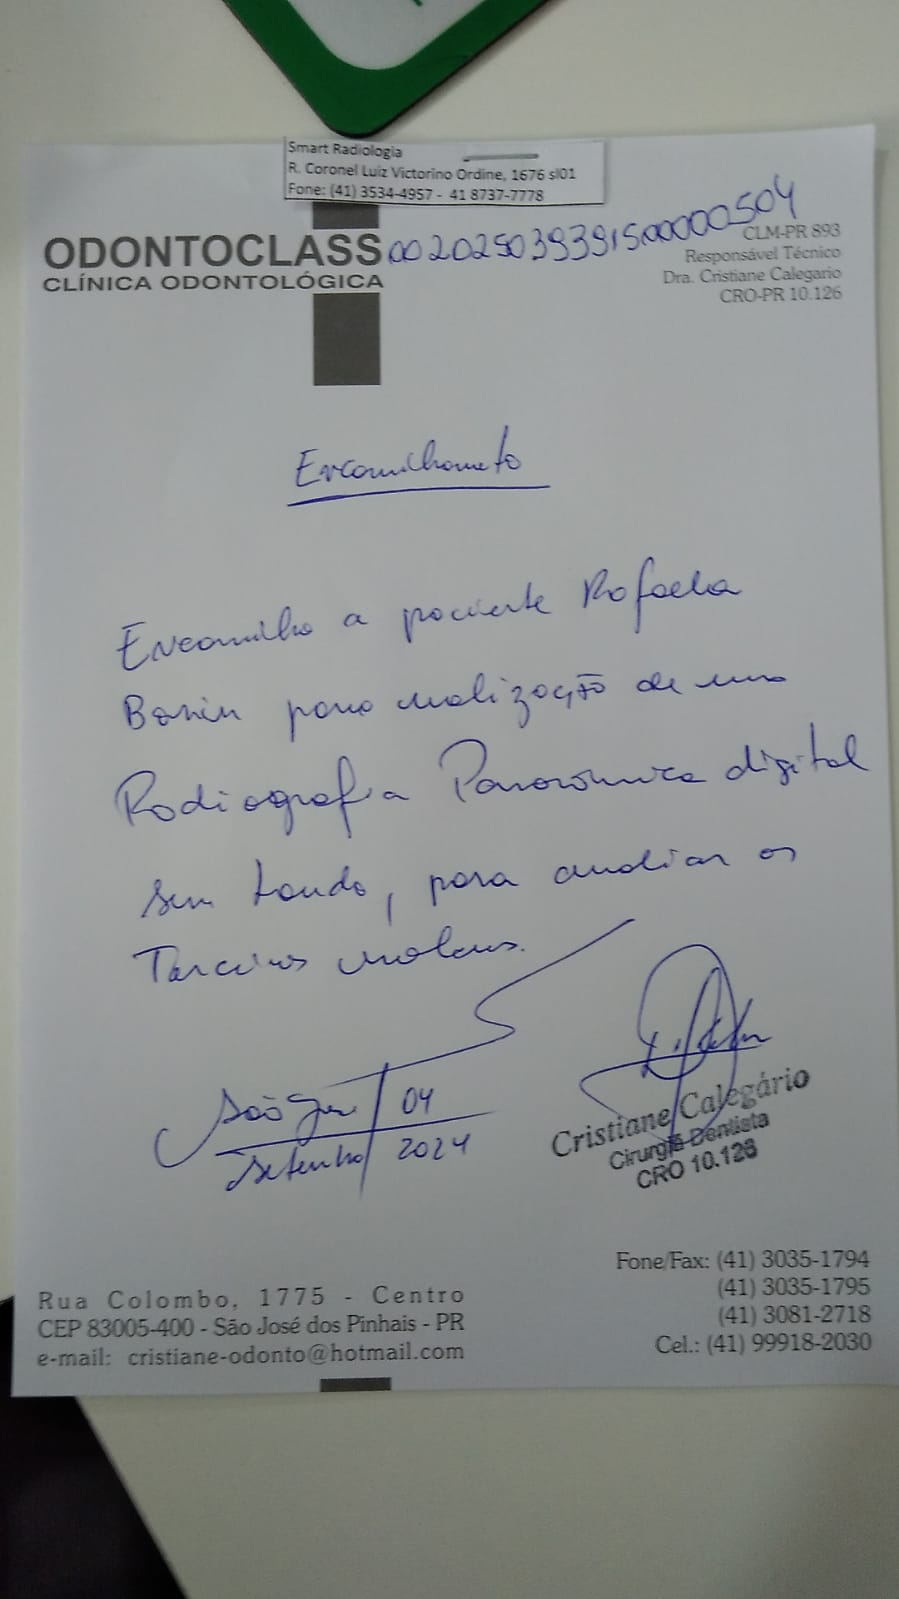 Smart Radiologia
R. Coronel Luiz Victorino Ordine, 1676 sl01
Fone: (41) 3534-4957 - 41 8737-7778
ODONTOCLASS
CLÍNICA ODONTOLÓGICA
002025039391500000504
CLM-PR 893
Responsável Técnico
Dra. Cristiane Calegario
CRO-PR 10.126
Encaminhameto
Encaminho a paciente Rafaela
Bonin para realização de uma
Radiografia Panorâmica digital
sem laudo, para avaliar os
Terceiros molares.
São José 04
Setembro 2024
Cristiane Calegário
Cirurgiã Dentista
CRO 10.126
Rua Colombo, 1775 - Centro
CEP 83005-400 - São José dos Pinhais - PR
e-mail: cristiane-odonto@hotmail.com
Fone/Fax: (41) 3035-1794
(41) 3035-1795
(41) 3081-2718
Cel.: (41) 99918-2030